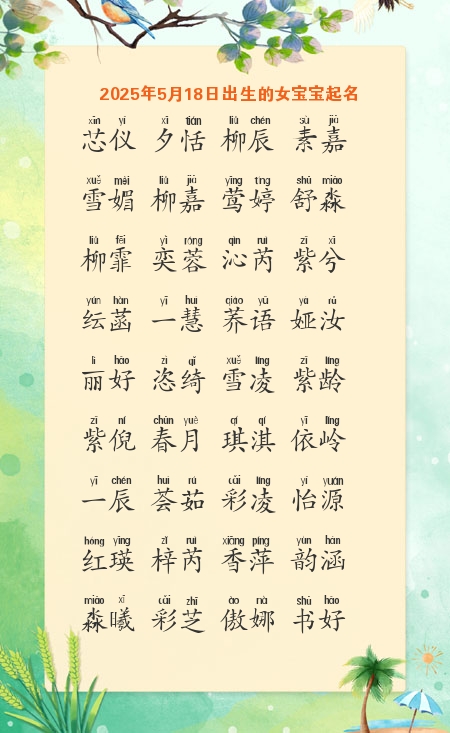 2025年5月18日出生的女宝宝起名
xīn yí xī tián liǔ chén sù jiā
芯仪 夕恬 柳辰 素嘉
xuě mèi liǔ jiā yīng tíng shū miǎo
雪媚 柳嘉 莺婷 舒淼
liǔ fēi yì róng qìn ruì zǐ xī
柳霏 奕蓉 沁芮 紫兮
yún hàn yī huì qiáo yǔ yà rǔ
纭菡 一慧 荞语 娅汝
lì hǎo zì qǐ xuě líng zǐ líng
丽好 恣绮 雪凌 紫龄
zǐ ní chūn yuè qí qí yī lǐng
紫倪 春月 琪淇 依岭
yī chén huì rú cǎi líng yí yuán
一辰 荟茹 彩凌 怡源
hóng yīng zǐ ruì xiāng píng yùn hán
红瑛 梓芮 香萍 韵涵
miǎo xī cǎi zhī ào nà shū hǎo
淼曦 彩芝 傲娜 书好